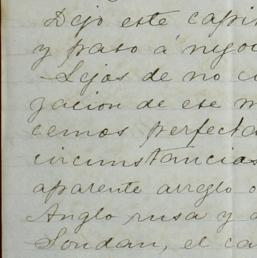 Dejo este capi
y paso á nego
Lejos de no c
gacion de ese m
cemos perfecta
circunstancias
aparente arreglo
Anglo rusa y
Soudan, el ca